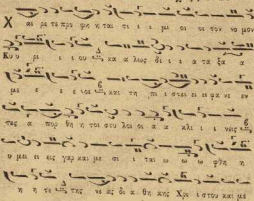 Χ αι ρε τε προ φη ται τι ι μι οι οι τον νο μον
Κυ υ ρι ι ι ου κα α λως δι ι α τα ξα α
με ε ι ε και τη πι στει ει φα νε εν
τες α πορ θη τοι στυ λοι οι α α κλι ι νεις
υ μεις εις γαρ και με σι ι ται ω ω φθη η
η η τε της νε ας δι α θη κης Χρι ι στου και με